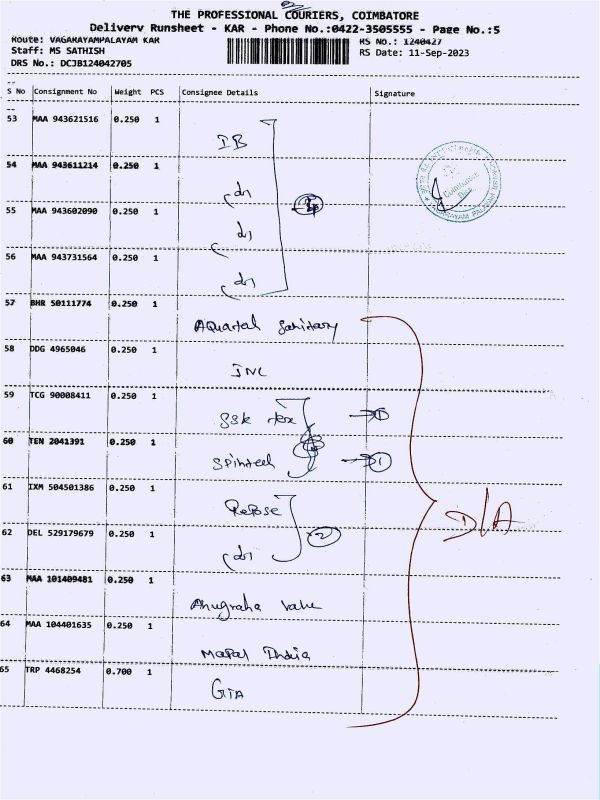 THE PROFESSIONAL COURIERS, COIMBATORE
Delivery Runsheet - KAR - Phone No.:0422-3505555 - Page No.:5
Route: VAGARAYAMPALAYAM KAR RS No.: 1240427
Staff: MS SATHISH RS Date: 11-Sep-2023
DRS No.: DCJB124042705
S No Consignment No Weight PCS Consignee Details Signature
53 MAA 943621516 0.250 1
IB
54 MAA 943611214 0.250 1
55 MAA 943602090 0.250 1
56 MAA 943731564 0.250 1
57 BHR 50111774 0.250 1
Sanitary
58 DDG 4965046 0.250 1
INC
59 TCG 90008411 0.250 1
SSK tex 1
60 TEN 2041391 0.250 1
Spintech 1
61 IXM 504501386 0.250 1
Repose
2
62 DEL 529179679 0.250 1
D/A
63 MAA 101409481 0.250 1
Anugraha Valve
64 MAA 104401635 0.250 1
Mapal India
65 TRP 4468254 0.700 1
GTA